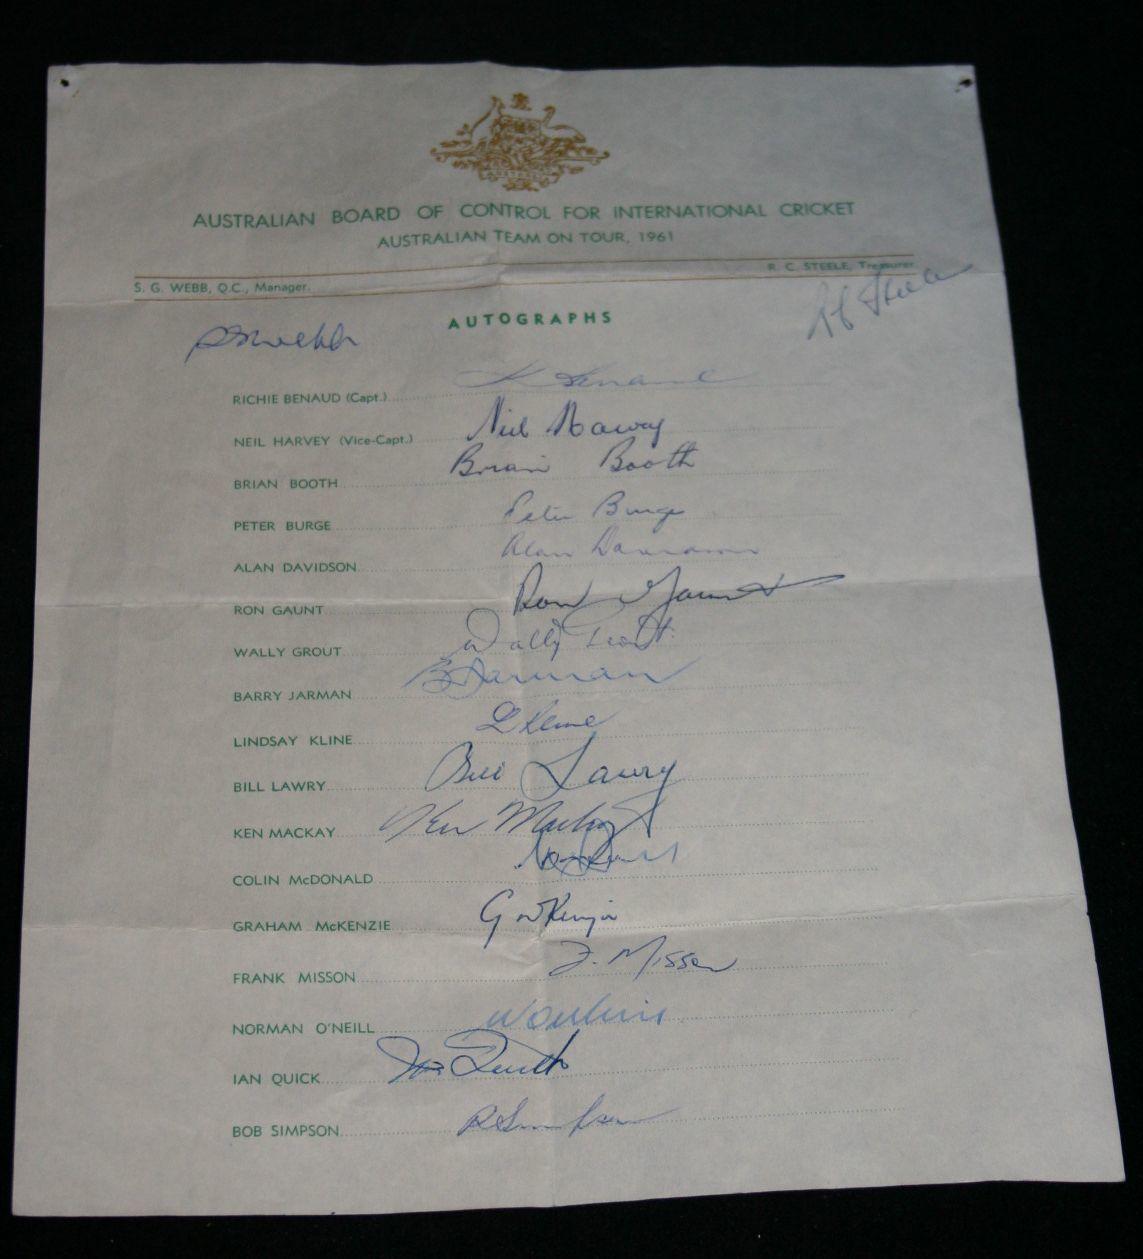 AUSTRALIA
AUSTRALIAN BOARD OF CONTROL FOR INTERNATIONAL CRICKET
AUSTRALIAN TEAM ON TOUR, 1961
R. C. STEELE, Treasurer
S. G. WEBB, Q.C., Manager.
AUTOGRAPHS
RC Steele
SGWebb
RICHIE BENAUD (Capt.) R Benaud
NEIL HARVEY (Vice-Capt.) Neil Harvey
BRIAN BOOTH Brian Booth
PETER BURGE Peter Burge
ALAN DAVIDSON Alan Davidson
RON GAUNT Ron Gaunt
WALLY GROUT Wally Grout
BARRY JARMAN B Jarman
LINDSAY KLINE L Kline
BILL LAWRY Bill Lawry
KEN MACKAY Ken Mackay
COLIN McDONALD
GRAHAM McKENZIE G McKenzie
FRANK MISSON F. Misson
NORMAN O'NEILL N O'Neill
IAN QUICK Ian Quick
BOB SIMPSON R Simpson